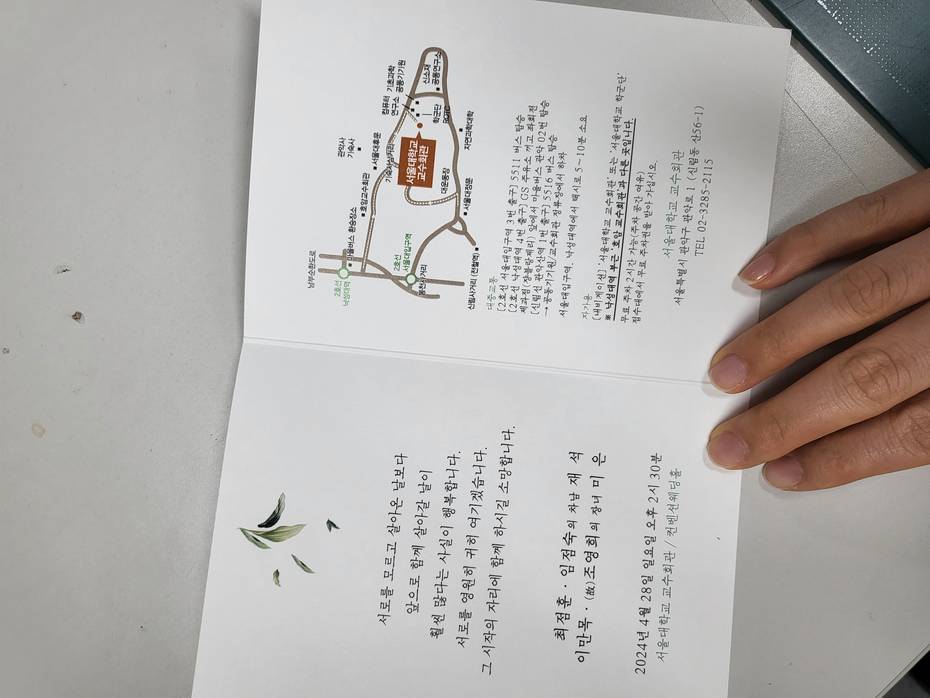 서로를 모르고 살아온 날보다
앞으로 함께 살아갈 날이
훨씬 많다는 사실이 행복합니다.
서로를 영원히 귀히 여기겠습니다.
그 시작의 자리에 함께 하시길 소망합니다.
최점훈 · 임점숙의 차남 재 석
이만목 · (故)조영희의 장녀 미 은
2024년 4월 28일 일요일 오후 2시 30분
서울대학교 교수회관 / 컨벤션웨딩홀
남부순환도로
2호선
낙성대역
마을버스 환승장소
호암교수회관
관악사
기숙사
서울대후문
컴퓨터
연구소
기초과학
공동기기원
신소재
공동연구소
학군단
서울대학교
교수회관
자연과학대학
대운동장
서울대정문
2호선
서울대입구역
신림사거리 (전철역)
대중교통
[2호선 서울대입구역 3번 출구] 5511 버스 탑승
[2호선 낙성대역 4번 출구] GS 주유소 끼고 좌회전
제과점(장블랑제리) 앞에서 마을버스 관악 02번 탑승
[신림선 관악산역 1번 출구] 5516 버스 탑승
→ 공동기기원/교수회관 정류장에서 하차
서울대입구역, 낙성대역에서 택시로 5~10분 소요
자가용
[내비게이션] '서울대학교 교수회관' 또는 '서울대학교 학군단'
※ 낙성대역 부근 호암 교수회관 과 다른 곳입니다.
무료 주차 2시간 가능(주차 공간 여유)
접수대에서 무료 주차권을 받아 가십시오.
서울대학교 교수회관
서울특별시 관악구 관악로 1 (신림동 산56-1)
TEL 02-3285-2115